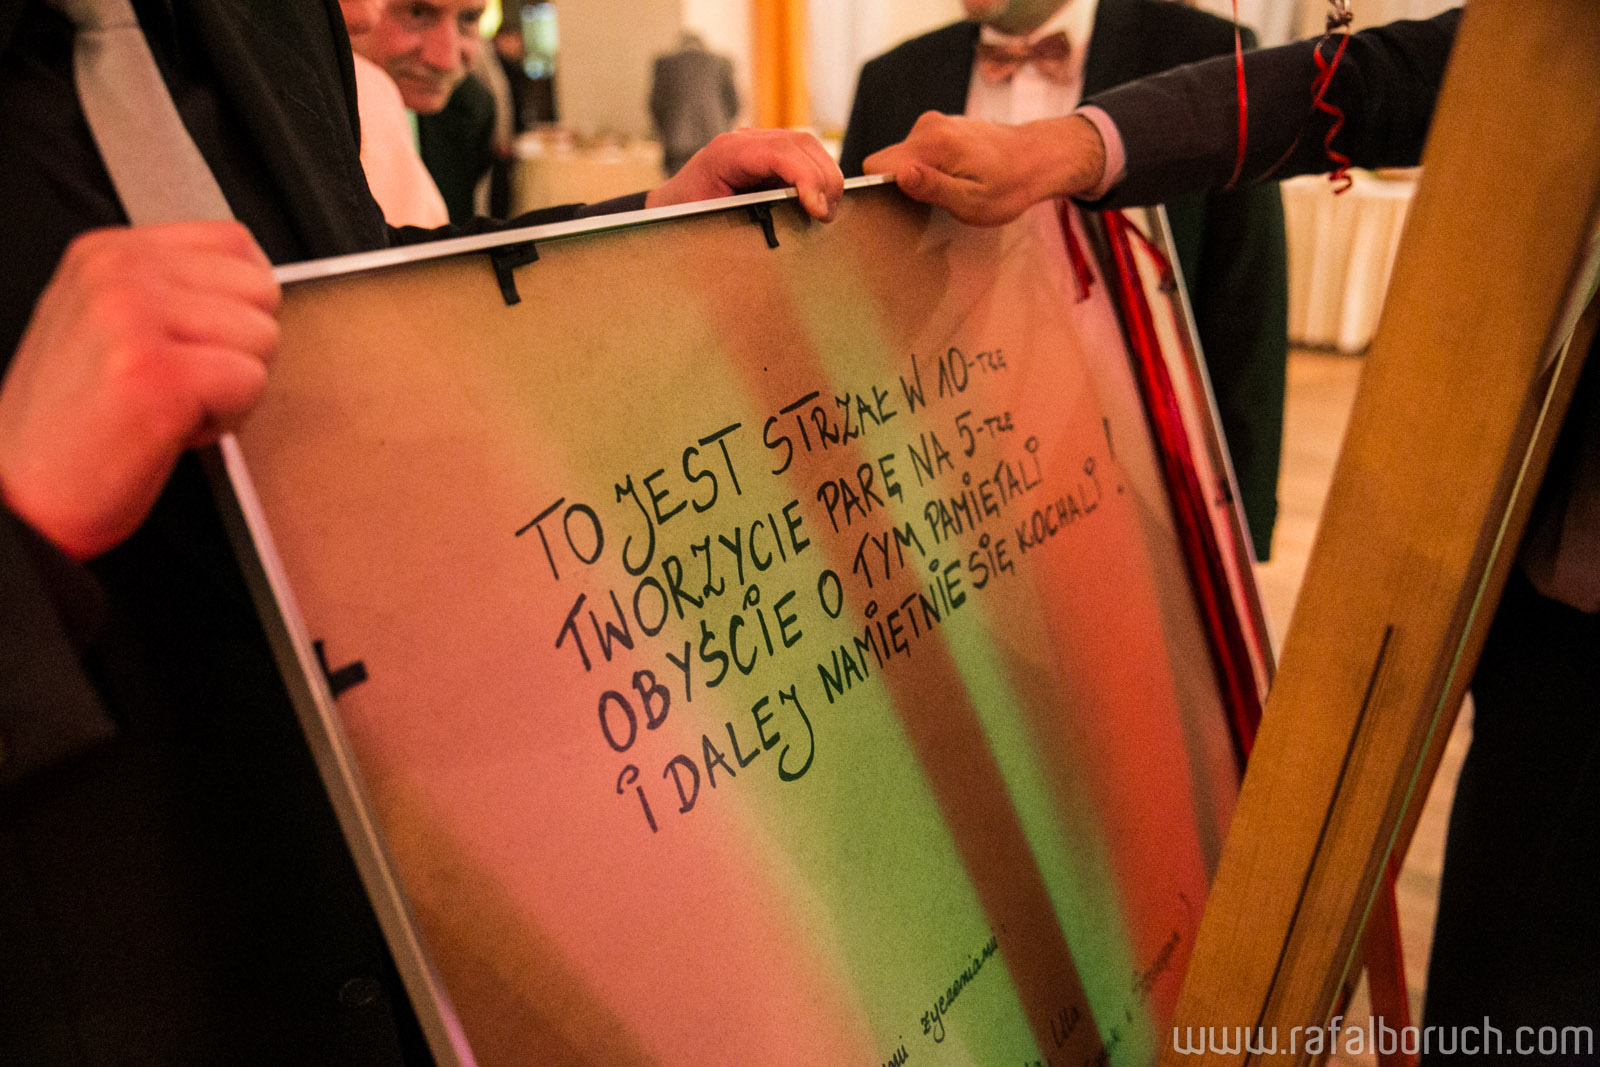 TO JEST STRZAŁ W 10-TKĘ
TWORZYCIE PARĘ NA 5-TKĘ
OBYŚCIE O TYM PAMIĘTALI
I DALEJ NAMIĘTNIE SIĘ KOCHALI!
życzeniami:
www.rafalboruch.com